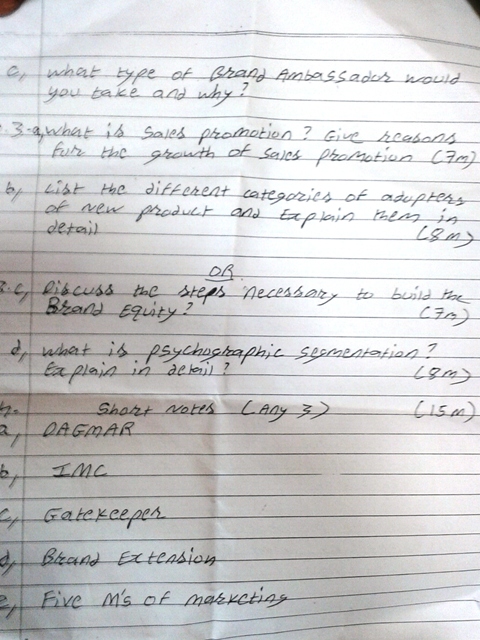 c, what type of Brand Ambassador would
you take and why?
3-a, what is Sales promotion? Give reasons
for the growth of sales promotion (7m)
b, List the different categories of adopters
of new product and Explain them in
detail (8m)
OR
3.c, Discuss the steps necessary to build the
Brand Equity? (7m)
d, what is psychographic segmentation?
Explain in detail? (8m)
Short Notes (Any 3) (15m)
a, DAGMAR
b, IMC
c, Gatekeeper
d, Brand Extension
e, Five M's of marketing